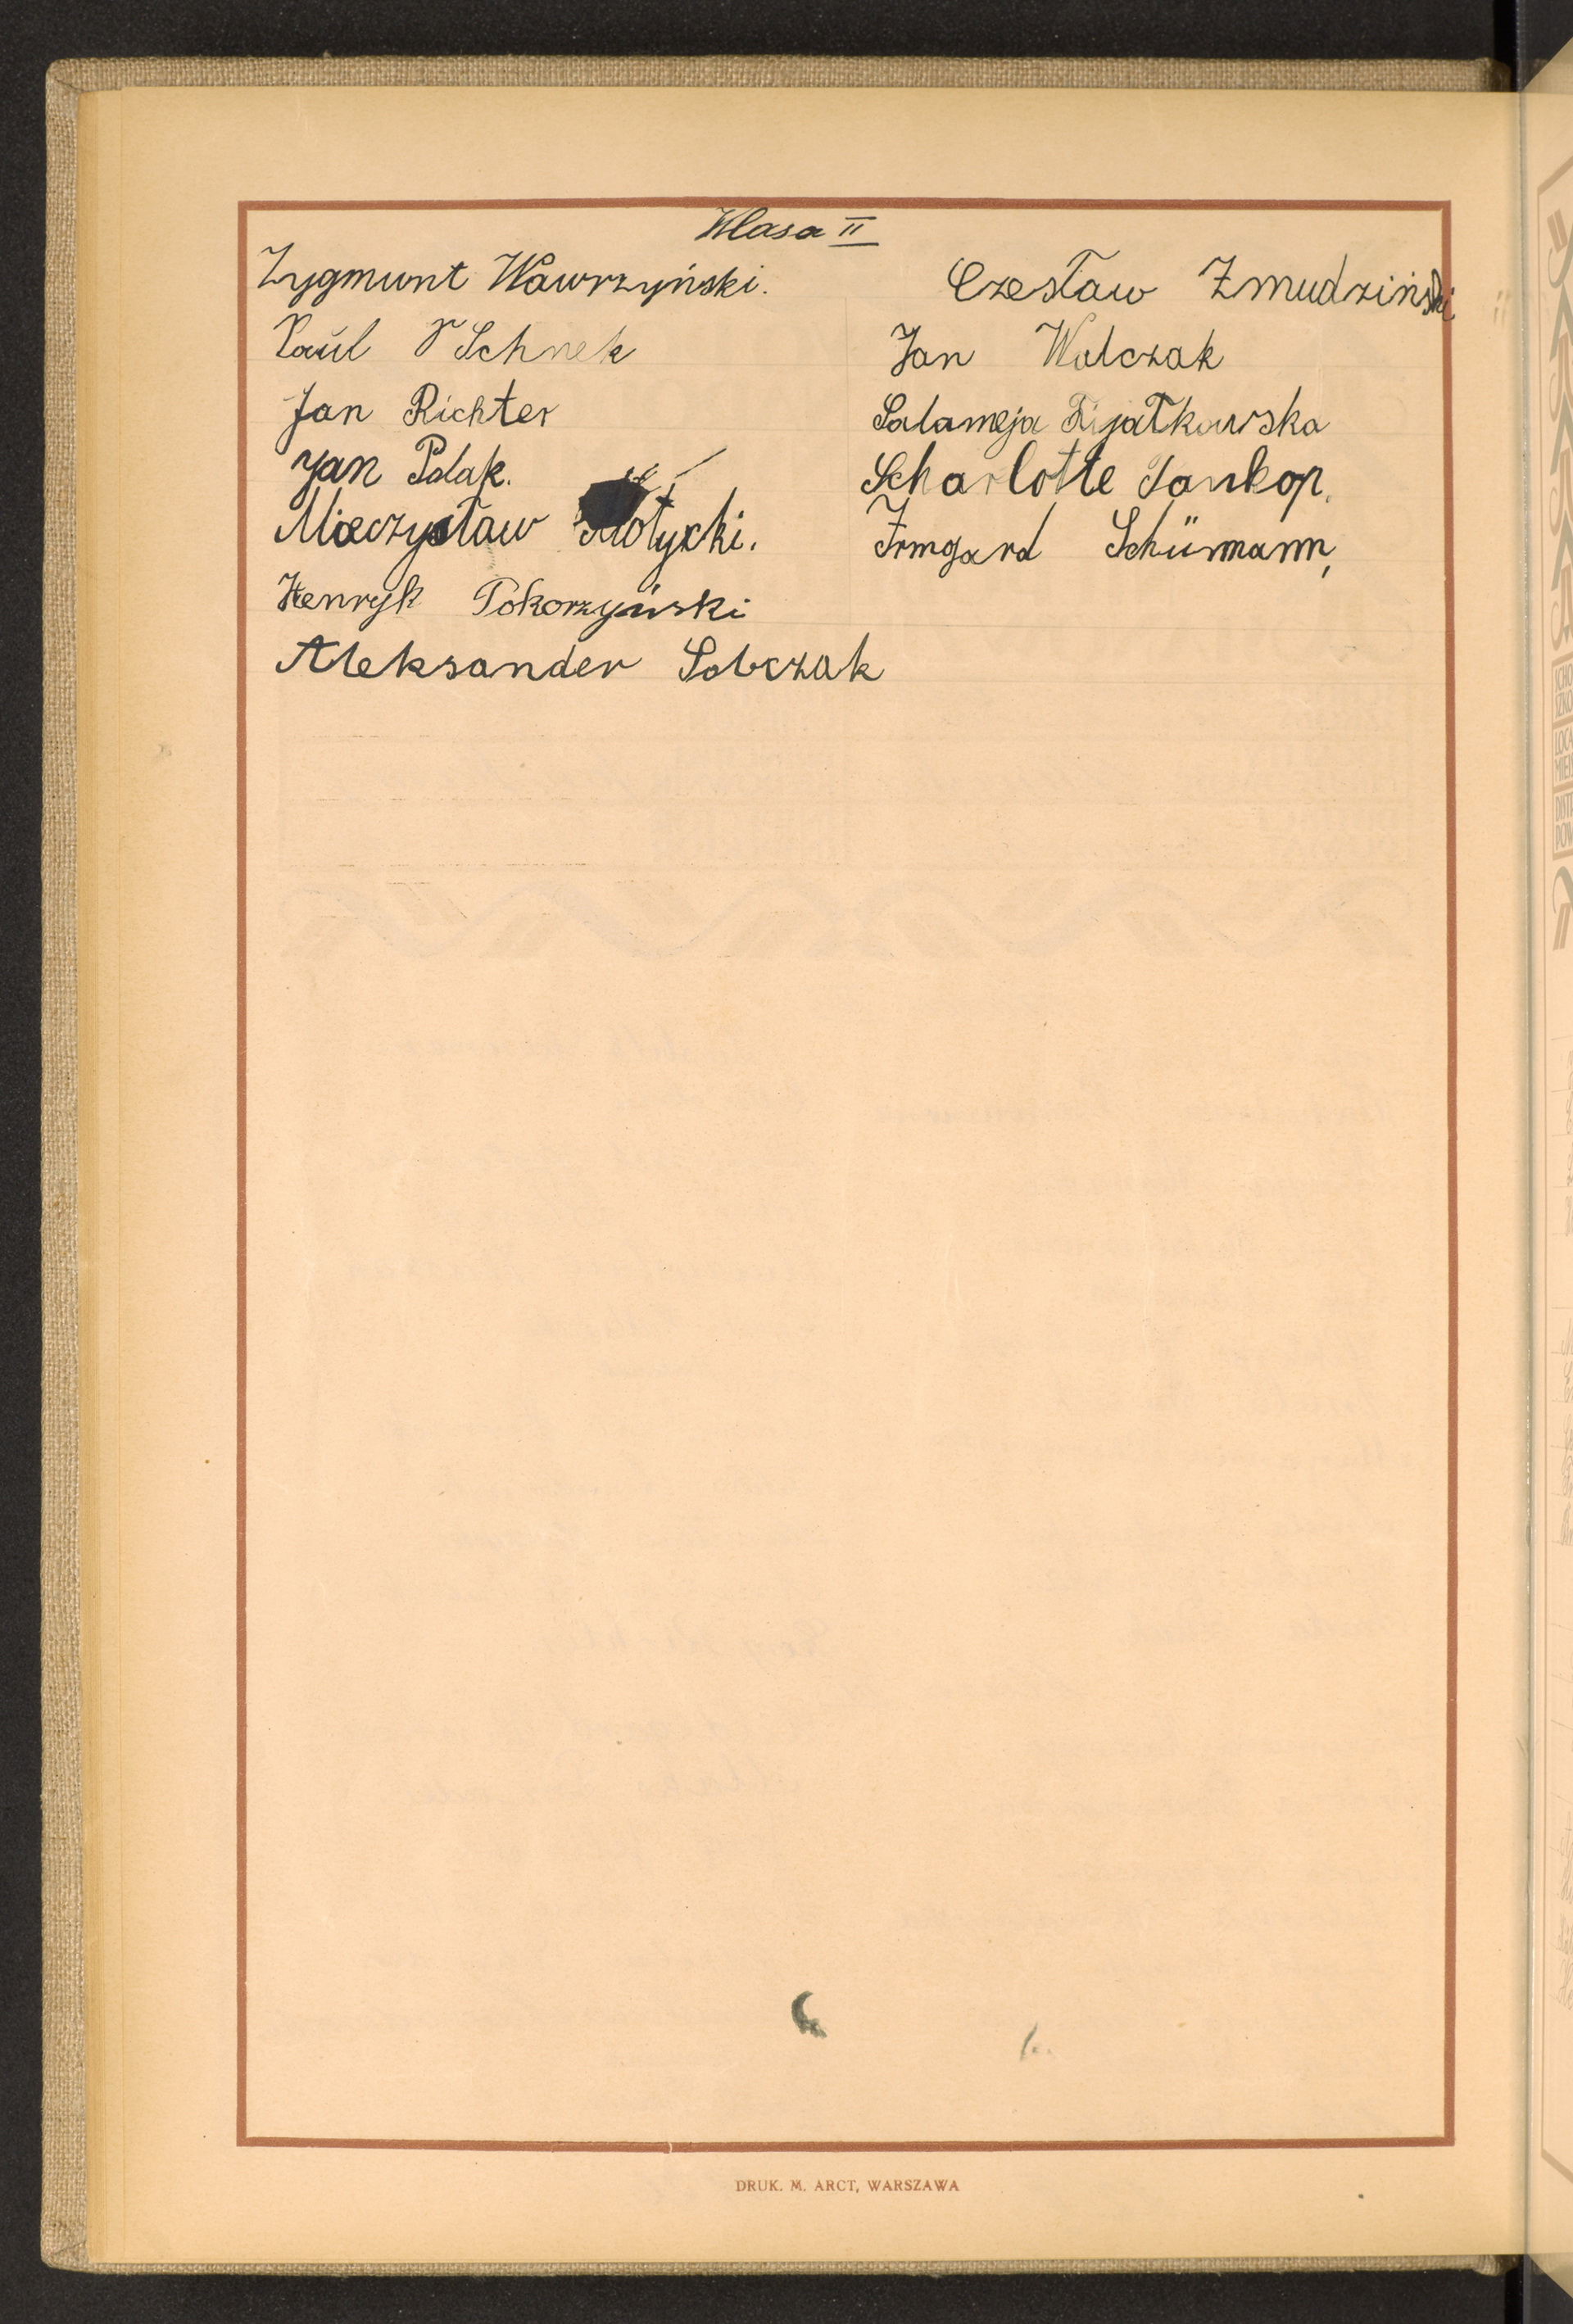 Klasa II
Zygmunt Wawrzyński.
Paul Schnek
Jan Richter
Jan Polak.
Mieczysław
Henryk Pokorzyński
Aleksander Sobczak
Czesław Żmudziński
Jan Walczak
Salameja
Scharlotte Jankop.
Irmgard Schürmann,
DRUK. M. ARCT, WARSZAWA